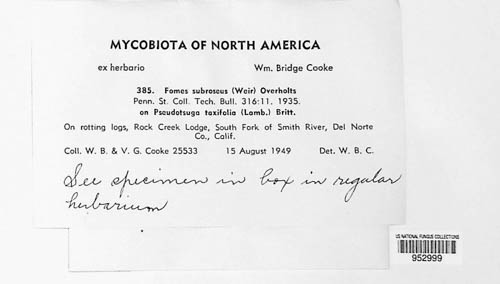 MYCOBIOTA OF NORTH AMERICA
ex herbario Wm. Bridge Cooke
385. Fomes subroseus (Weir) Overholts
Penn. St. Coll. Tech. Bull. 316:11. 1935.
on Pseudotsuga taxifolia (Lamb.) Britt.
On rotting logs, Rock Creek Lodge, South Fork of Smith River, Del Norte
Co., Calif.
Coll. W. B. & V. G. Cooke 25533 15 August 1949 Det. W. B. C.
See specimen in box in regular
herbarium
US NATIONAL FUNGUS COLLECTIONS
952999